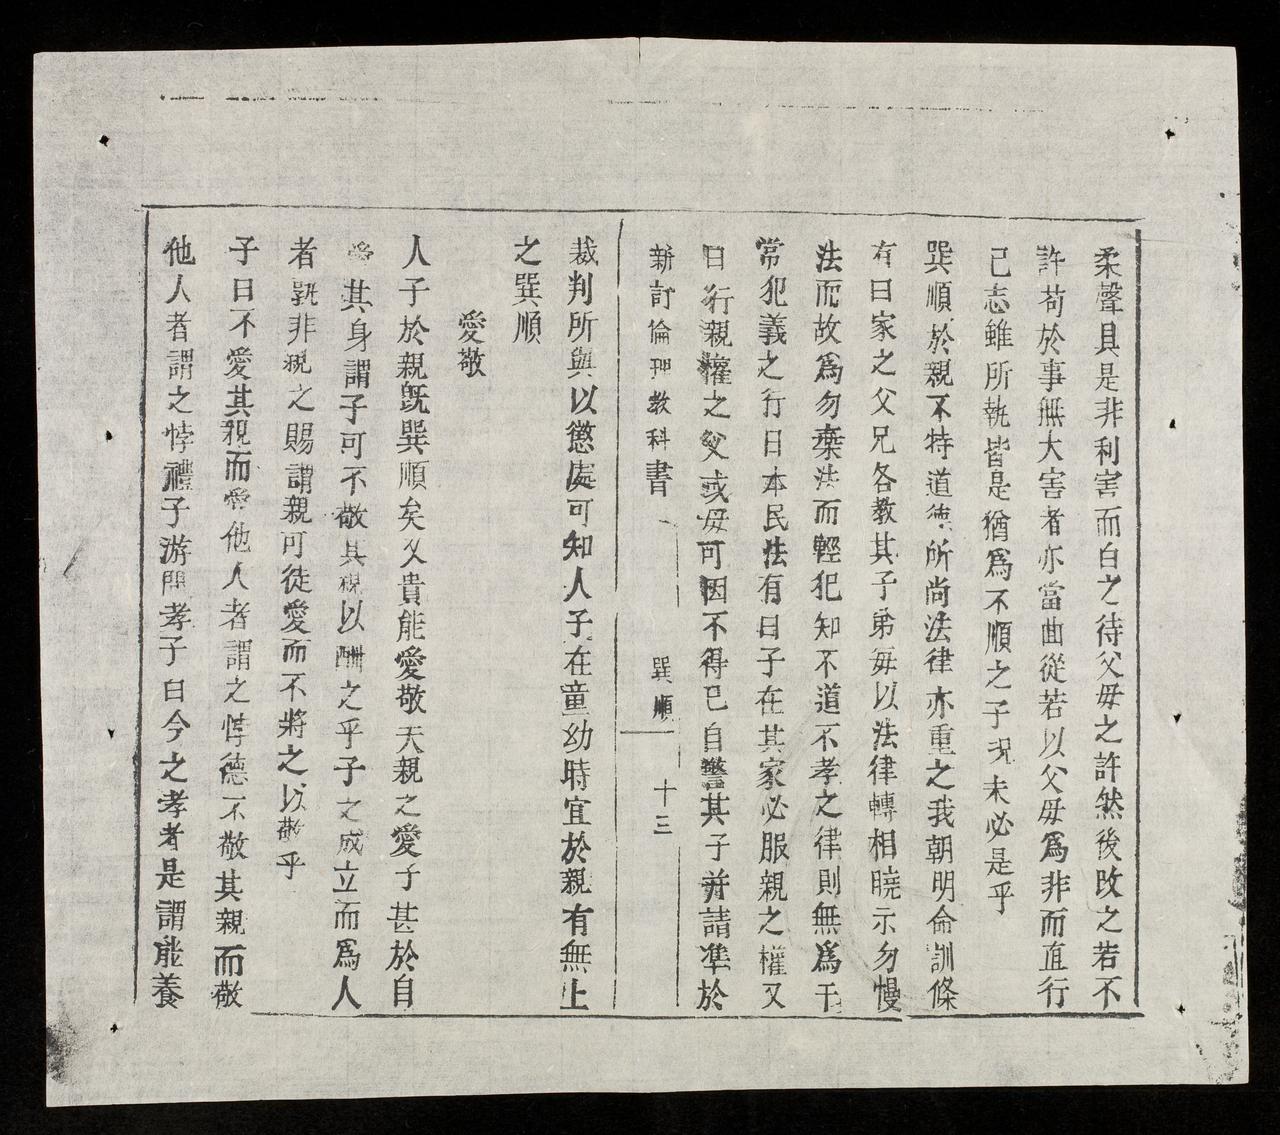 柔聲具是非利害而白之待父毋之許然後改之若不
許苟於事無大害者亦當曲從若以父毋爲非而直行
己志雖所執皆是猶爲不順之子况未必是乎
巽順於親不特道德所尚法律亦重之我朝明命訓條
有曰家之父兄各教其子弟毎以法律轉相曉示勿慢
法而故爲勿棄法而輕犯知不道不孝之律則無爲干
常犯義之行日本民法有曰子在其家必服親之權又
曰行親權之父或毋可因不得已自警其子并請準於
新訂倫理教科書 巽順 十三
裁判所與以懲處可知人子在童幼時宜於親有無上
之巽順
愛敬
人子於親旣巽順矣又貴能愛敬夫親之愛子甚於自
愛其身謂子可不敬其親以酬之乎子之成立而爲人
者孰非親之賜謂親可徒愛而不將之以敬乎
子曰不愛其親而愛他人者謂之悖德不敬其親而敬
他人者謂之悖禮子游問孝子曰今之孝者是謂能養